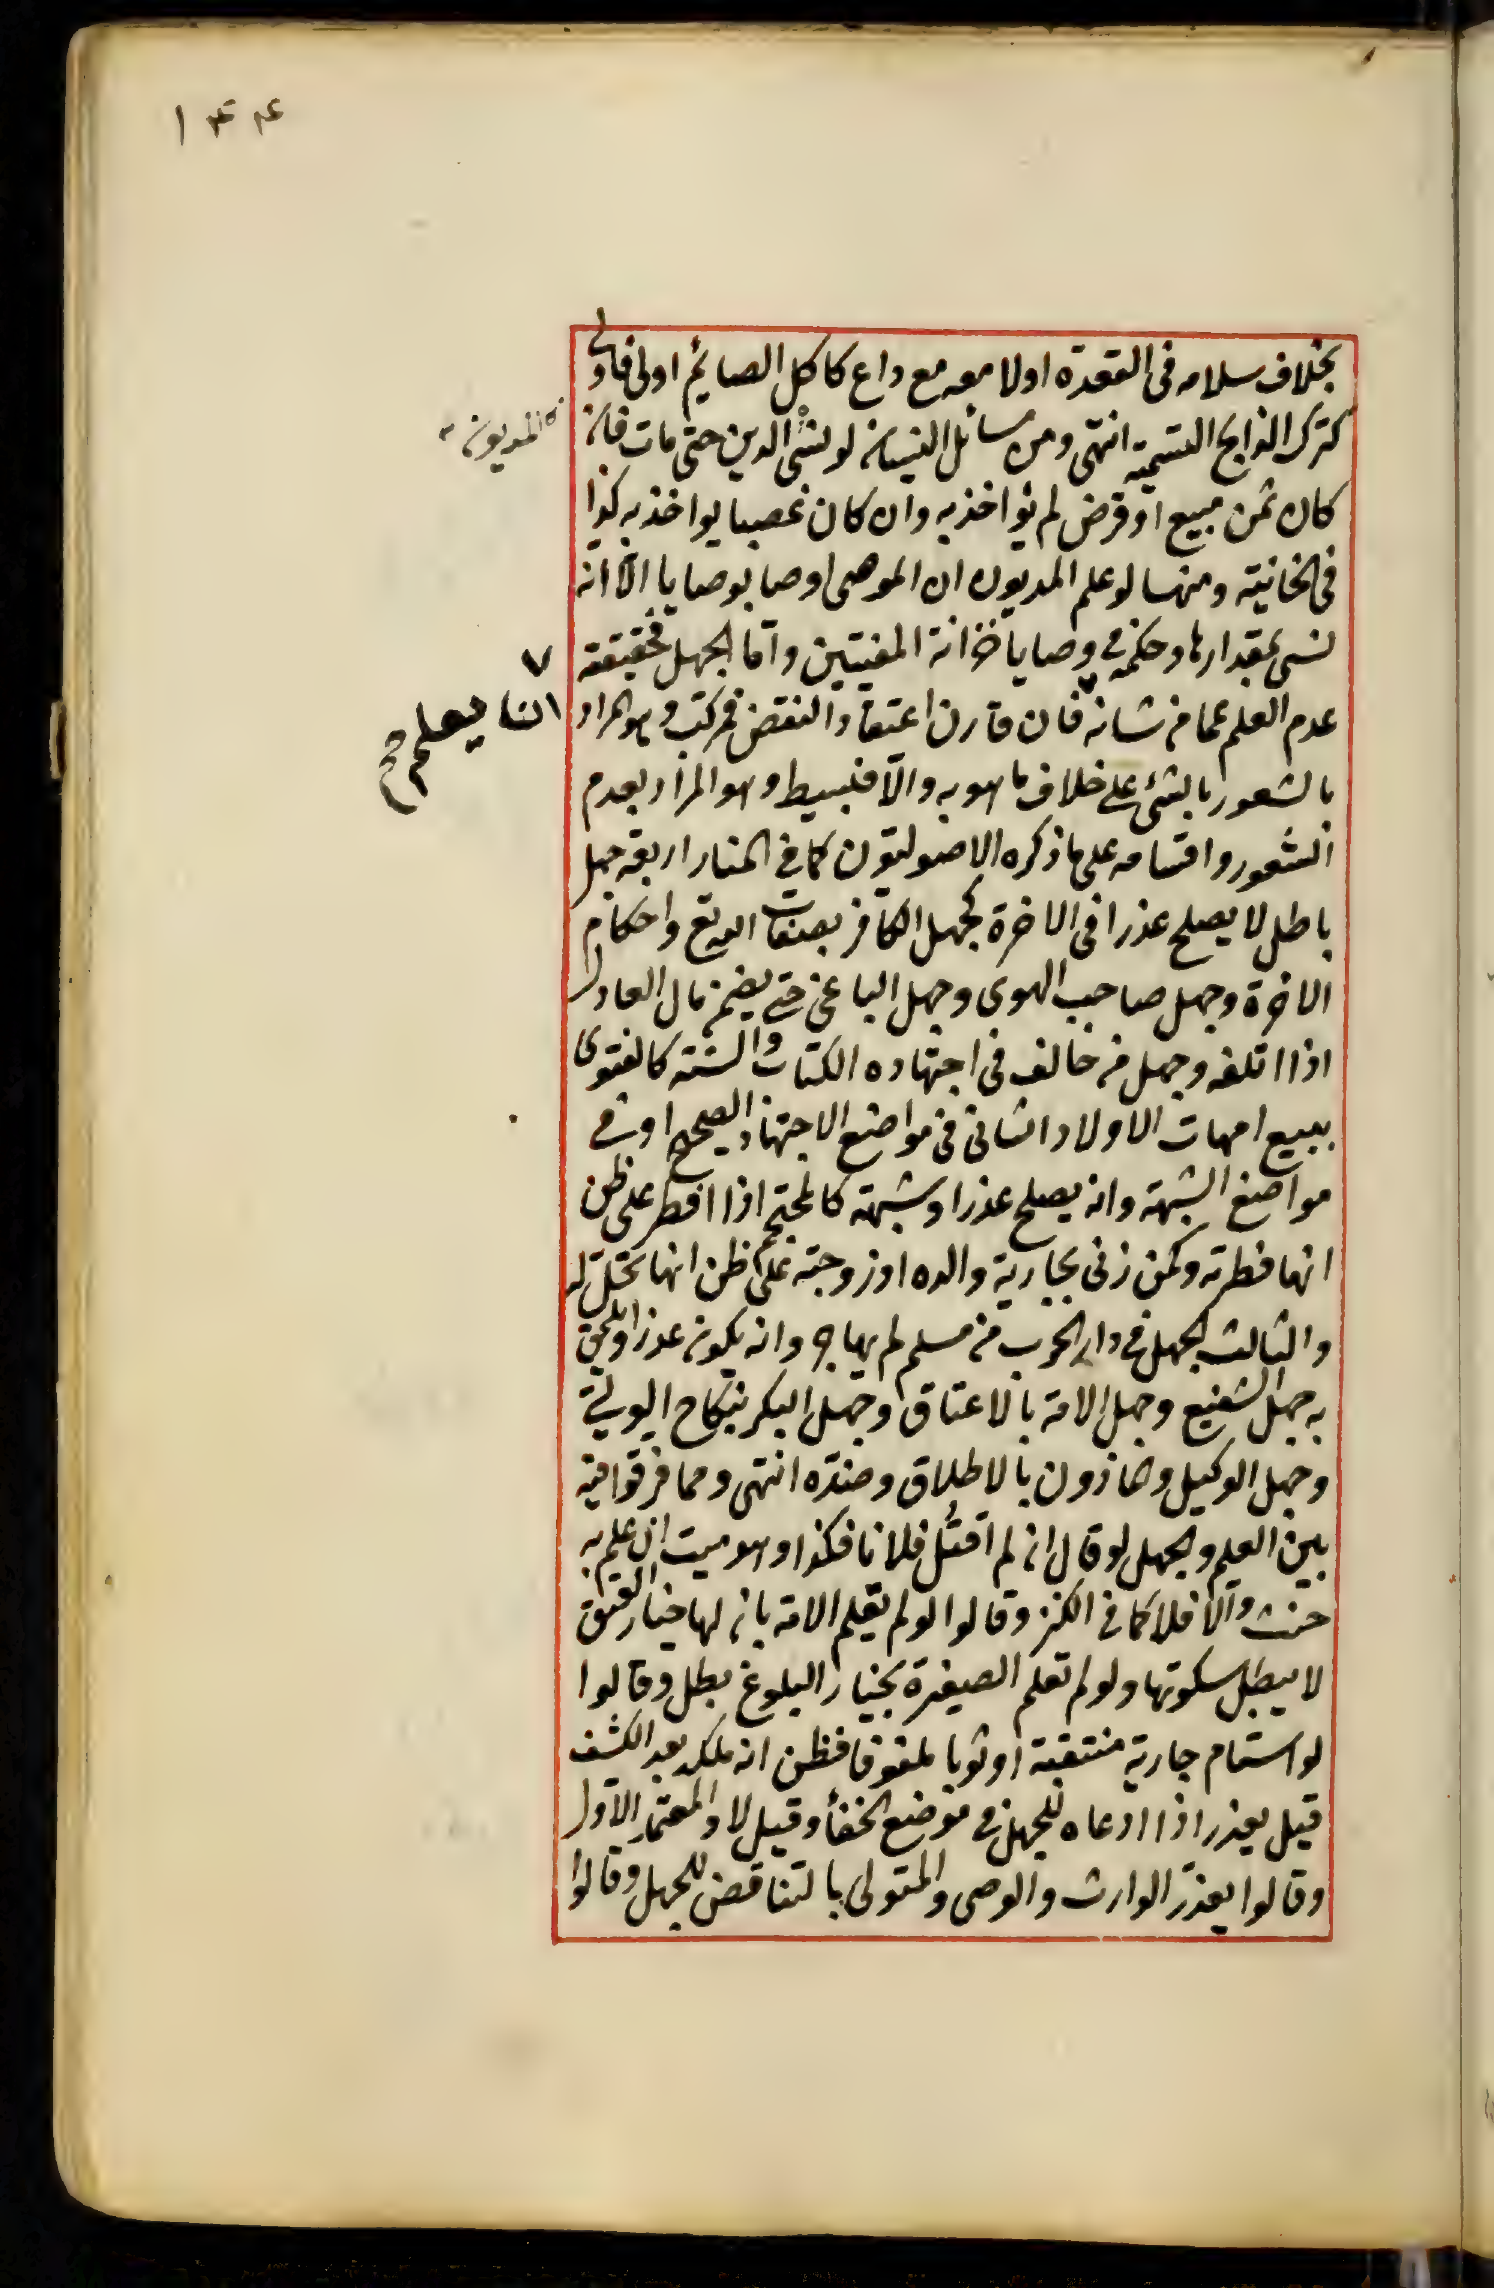 ١٤٤
بخلاف سلامه فى القعدة اولا معه مع داع كاكل الصائم اولى فاولى
كترك الذابح التسمية انتهى ومن مسائل النسيان لو نسى الدين حتى مات فان
المديون
كان ثمن مبيع او قرض لم يؤاخذ به وان كان غصبا يواخذ به كذا
فى الخانية ومنها لو علم المديون ان الموصى اوصا بوصايا الا انه
نسى مقدارها وحكمه فى وصايا خزانة المفتيين واما الجهل فحقيقته
عدم العلم عما من شانه فان قارن اعتقاد النقض فمركب وهو المراد
يعلم صح
بالشعور بالشئ على خلاف ما هو به والا فبسيط وهو المراد بعدم
الشعور واقسامه على ما ذكره الاصوليون كما فى المنار اربعة جهل
باطل لا يصلح عذرا فى الاخرة كجهل الكافر بصفات الله تع واحكام
الاخرة وجهل صاحب الهوى وجهل الباغى حتى يضمن مال العادل
اذا اتلفه وجهل من خالف فى اجتهاده الكتاب والسنة كالفتوى
ببيع امهات الاولاد الثانى فى مواضع الاجتهاد الصحيح او فى
مواضع الشبهة وانه يصلح عذرا وشبهة كالمحتجم اذا افطر على ظن
انها فطرته وكمن زنى بجارية والده او زوجته على ظن انها تحل له
والثالث الجهل فى دار الحرب من مسلم لم يهاجر وانه يكون عذرا ويلحق
به جهل الشفيع وجهل الامة بالاعتاق وجهل البكر بنكاح الولى
وجهل الوكيل والماذون بالاطلاق وضده انتهى ومما فرقوا فيه
بين العلم والجهل لو قال ان لم اقتل فلانا فكذا وهو ميت ان علم به
حنث والا فلا كما فى الكنز وقالوا لو لم تعلم الامة بان لها خيار العتق
لا يبطل سكوتها ولو لم تعلم الصغيرة بخيار البلوغ بطل وقالوا
لو استام جارية منتقبة او ثوبا ملفوفا فظن انه ملكه بعد الكشف
قيل يعذر اذا ادعاه للجهل فى موضع الخفأ وقيل لا والمعتمد الاول
وقالوا يعذر الوارث والوصى والمتولى بالتناقض للجهل وقالوا